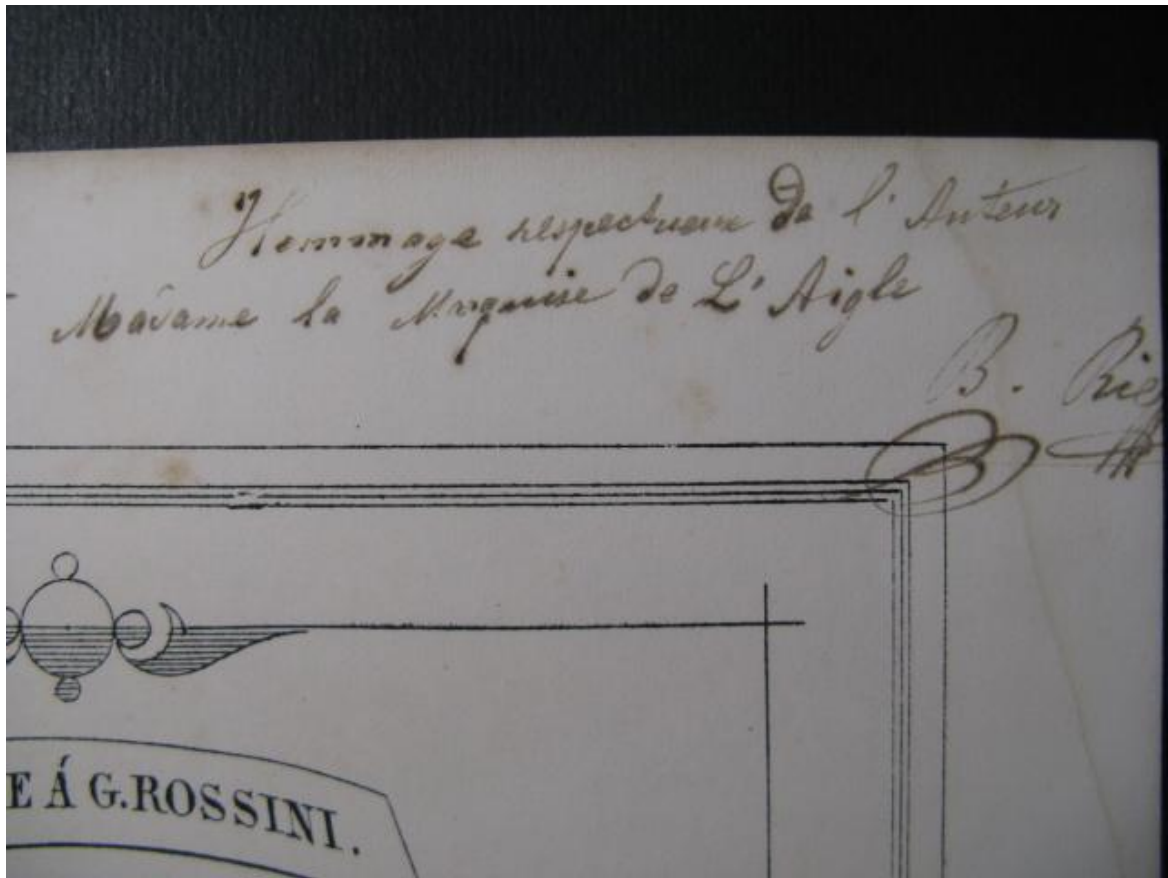 Hommage respectueux de l'Auteur
Madame la Marquise de L'Aigle
B.
E Á G. ROSSINI.